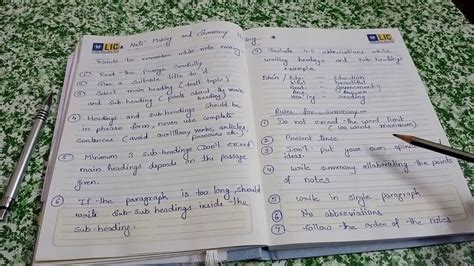 LIC
Note Making and Summary Writing
Points to remember while note making
① Read the passage carefully
② Give a suitable title to it
③ Select main heading (main topic)
and sub heading (points about the main
heading)
④ Headings and sub headings should be
in phrase form, never use complete
sentences (avoid auxilliary verbs, articles,
pronouns etc.)
⑤ Minimum 3 sub-headings (Don't exceed
main headings depends on the passage
given.
⑥ If the paragraph is too long, should
write Sub-Sub headings inside the
Sub-heading.
LIC
⑦ Include 4-5 abbreviations while
writing headings and sub headings
example
Education
beautiful
government
Reading
Rules for Summary
① Do not exceed the word limit
(100 words maximum)
② Present tense
③ Don't put your own
ideas.
④ Write summary ellaborating the points
of notes
⑤ Write in single paragraph
⑥ No abbreviations
⑦ Follow the order of the notes